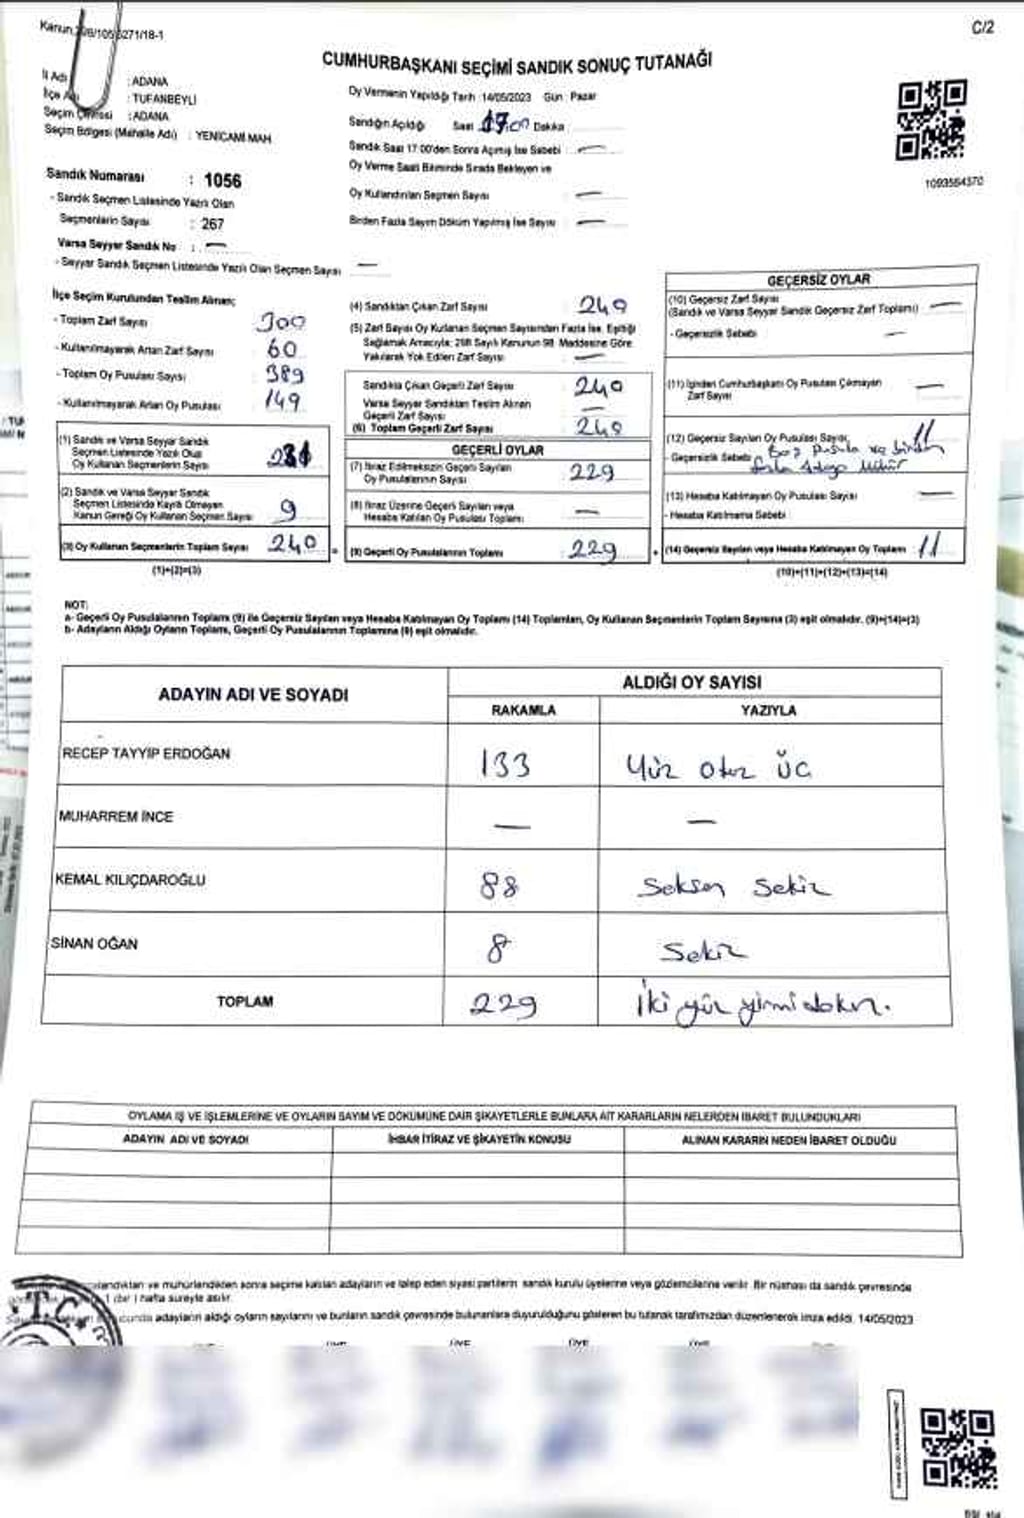 C/2
CUMHURBAŞKANI SEÇİMİ SANDIK SONUÇ TUTANAĞI
İl Adı : ADANA
İlçe Adı : TUFANBEYLİ
Seçim Çevresi : ADANA
Seçim Bölgesi (Mahalle Adı) : YENİCAMİ MAH
Sandık Numarası : 1056
- Sandık Seçmen Listesinde Yazılı Olan
Seçmenlerin Sayısı : 267
Varsa Seyyar Sandık No : —
- Seyyar Sandık Seçmen Listesinde Yazılı Olan Seçmen Sayısı —
Oy Vermenin Yapıldığı Tarih : 14/05/2023 Gün : Pazar
Sandığın Açıldığı Saat 17:00 Dakika :
Sandık Saat 17:00'den Sonra Açılmış İse Sebebi : —
Oy Verme Saati Bitiminde Sırada Bekleyen ve
Oy Kullandırılan Seçmen Sayısı : —
Birden Fazla Sayım Döküm Yapılmış İse Sayısı : —
1093564370
İlçe Seçim Kurulundan Teslim Alınan;
- Toplam Zarf Sayısı : 300
- Kullanılmayarak Artan Zarf Sayısı : 60
- Toplam Oy Pusulası Sayısı : 389
- Kullanılmayarak Artan Oy Pusulası : 149
(1) Sandık ve Varsa Seyyar Sandık
Seçmen Listesinde Yazılı Olup
Oy Kullanan Seçmenlerin Sayısı : 231
(2) Sandık ve Varsa Seyyar Sandık
Seçmen Listesinde Kayıtlı Olmayan
Kanun Gereği Oy Kullanan Seçmen Sayısı : 9
(3) Oy Kullanan Seçmenlerin Toplam Sayısı : 240
(1)+(2)=(3)
(4) Sandıktan Çıkan Zarf Sayısı : 240
(5) Zarf Sayısı Oy Kullanan Seçmen Sayısından Fazla İse, Eşitliği
Sağlamak Amacıyla; 298 Sayılı Kanunun 98. Maddesine Göre
Yakılarak Yok Edilen Zarf Sayısı : —
Sandıkta Çıkan Geçerli Zarf Sayısı : 240
Varsa Seyyar Sandıktan Teslim Alınan
Geçerli Zarf Sayısı : —
(6) Toplam Geçerli Zarf Sayısı : 240
GEÇERLİ OYLAR
(7) İtiraz Edilmeksizin Geçerli Sayılan
Oy Pusulalarının Sayısı : 229
(8) İtiraz Üzerine Geçerli Sayılan veya
Hesaba Katılan Oy Pusulası Toplamı : —
(9) Geçerli Oy Pusulalarının Toplamı : 229
GEÇERSİZ OYLAR
(10) Geçersiz Zarf Sayısı
(Sandık ve Varsa Seyyar Sandık Geçersiz Zarf Toplamı) : —
- Geçersizlik Sebebi : —
(11) İçinden Cumhurbaşkanı Oy Pusulası Çıkmayan
Zarf Sayısı : —
(12) Geçersiz Sayılan Oy Pusulası Sayısı 11
- Geçersizlik Sebebi : Boş pusula ve birden
fazla Adaya Mühür
(13) Hesaba Katılmayan Oy Pusulası Sayısı : —
- Hesaba Katılmama Sebebi :
(14) Geçersiz Sayılan veya Hesaba Katılmayan Oy Toplamı : 11
(10)+(11)+(12)+(13)=(14)
NOT:
a- Geçerli Oy Pusulalarının Toplamı (9) ile Geçersiz Sayılan veya Hesaba Katılmayan Oy Toplamı (14) Toplamları, Oy Kullanan Seçmenlerin Toplam Sayısına (3) eşit olmalıdır. (9)+(14)=(3)
b- Adayların Aldığı Oyların Toplamı, Geçerli Oy Pusulalarının Toplamına (9) eşit olmalıdır.
ADAYIN ADI VE SOYADI ALDIĞI OY SAYISI
RAKAMLA YAZIYLA
RECEP TAYYİP ERDOĞAN 133 Yüz otuz üç
MUHARREM İNCE — —
KEMAL KILIÇDAROĞLU 88 Seksen Sekiz
SİNAN OĞAN 8 Sekiz
TOPLAM 229 İki yüz yirmi dokuz.
OYLAMA İŞ VE İŞLEMLERİNE VE OYLARIN SAYIM VE DÖKÜMÜNE DAİR ŞİKAYETLERLE BUNLARA AİT KARARLARIN NELERDEN İBARET BULUNDUKLARI
ADAYIN ADI VE SOYADI İHBAR İTİRAZ VE ŞİKAYETİN KONUSU ALINAN KARARIN NEDEN İBARET OLDUĞU
ve mühürlendikten sonra seçime katılan adayların ve talep eden siyasi partilerin sandık kurulu üyelerine veya gözlemcilerine verilir. Bir nüshası da sandık çevresinde
1 (bir) hafta süreyle asılır.
adayların aldığı oyların sayılarını ve bunların sandık çevresinde bulunanlara duyurulduğunu gösteren bu tutanak tarafımızdan düzenlenerek imza edildi. 14/05/2023
T.C.
ÜYE ÜYE ÜYE ÜYE